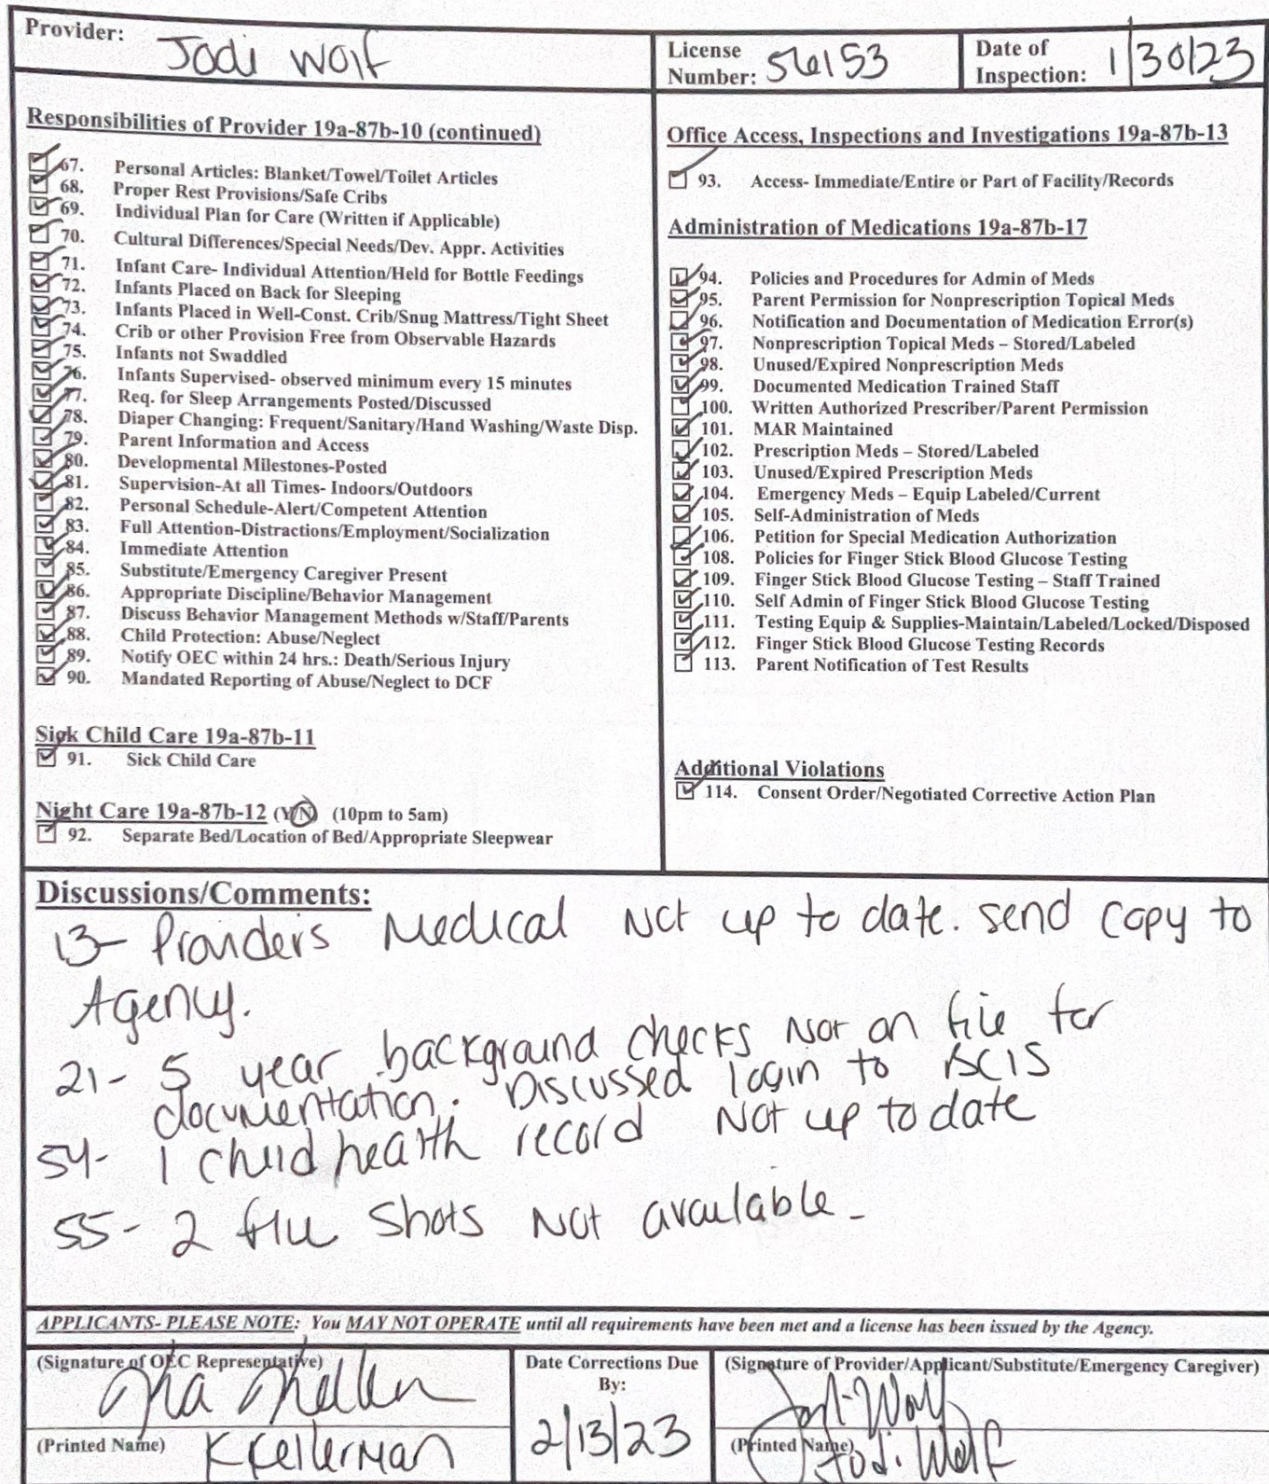 Provider: Jodi Wolf
License Number: 56153
Date of Inspection: 1/30/23
Responsibilities of Provider 19a-87b-10 (continued)
67. Personal Articles: Blanket/Towel/Toilet Articles
68. Proper Rest Provisions/Safe Cribs
69. Individual Plan for Care (Written if Applicable)
70. Cultural Differences/Special Needs/Dev. Appr. Activities
71. Infant Care- Individual Attention/Held for Bottle Feedings
72. Infants Placed on Back for Sleeping
73. Infants Placed in Well-Const. Crib/Snug Mattress/Tight Sheet
74. Crib or other Provision Free from Observable Hazards
75. Infants not Swaddled
76. Infants Supervised- observed minimum every 15 minutes
77. Req. for Sleep Arrangements Posted/Discussed
78. Diaper Changing: Frequent/Sanitary/Hand Washing/Waste Disp.
79. Parent Information and Access
80. Developmental Milestones-Posted
81. Supervision-At all Times- Indoors/Outdoors
82. Personal Schedule-Alert/Competent Attention
83. Full Attention-Distractions/Employment/Socialization
84. Immediate Attention
85. Substitute/Emergency Caregiver Present
86. Appropriate Discipline/Behavior Management
87. Discuss Behavior Management Methods w/Staff/Parents
88. Child Protection: Abuse/Neglect
89. Notify OEC within 24 hrs.: Death/Serious Injury
90. Mandated Reporting of Abuse/Neglect to DCF
Sick Child Care 19a-87b-11
91. Sick Child Care
Night Care 19a-87b-12 (Y/N) (10pm to 5am)
92. Separate Bed/Location of Bed/Appropriate Sleepwear
Office Access, Inspections and Investigations 19a-87b-13
93. Access- Immediate/Entire or Part of Facility/Records
Administration of Medications 19a-87b-17
94. Policies and Procedures for Admin of Meds
95. Parent Permission for Nonprescription Topical Meds
96. Notification and Documentation of Medication Error(s)
97. Nonprescription Topical Meds – Stored/Labeled
98. Unused/Expired Nonprescription Meds
99. Documented Medication Trained Staff
100. Written Authorized Prescriber/Parent Permission
101. MAR Maintained
102. Prescription Meds – Stored/Labeled
103. Unused/Expired Prescription Meds
104. Emergency Meds – Equip Labeled/Current
105. Self-Administration of Meds
106. Petition for Special Medication Authorization
108. Policies for Finger Stick Blood Glucose Testing
109. Finger Stick Blood Glucose Testing – Staff Trained
110. Self Admin of Finger Stick Blood Glucose Testing
111. Testing Equip & Supplies-Maintain/Labeled/Locked/Disposed
112. Finger Stick Blood Glucose Testing Records
113. Parent Notification of Test Results
Additional Violations
114. Consent Order/Negotiated Corrective Action Plan
Discussions/Comments:
13- Providers Medical Not up to date. send copy to
Agency.
21- 5 year background checks Not on file for
documentation. Discussed login to BCIS
54- 1 child health record Not up to date
55- 2 flu shots Not available-
APPLICANTS- PLEASE NOTE: You MAY NOT OPERATE until all requirements have been met and a license has been issued by the Agency.
(Signature of OEC Representative)
(Printed Name) K Kellerman
Date Corrections Due By:
2/13/23
(Signature of Provider/Applicant/Substitute/Emergency Caregiver)
Jodi Wolf
(Printed Name) Jodi Wolf